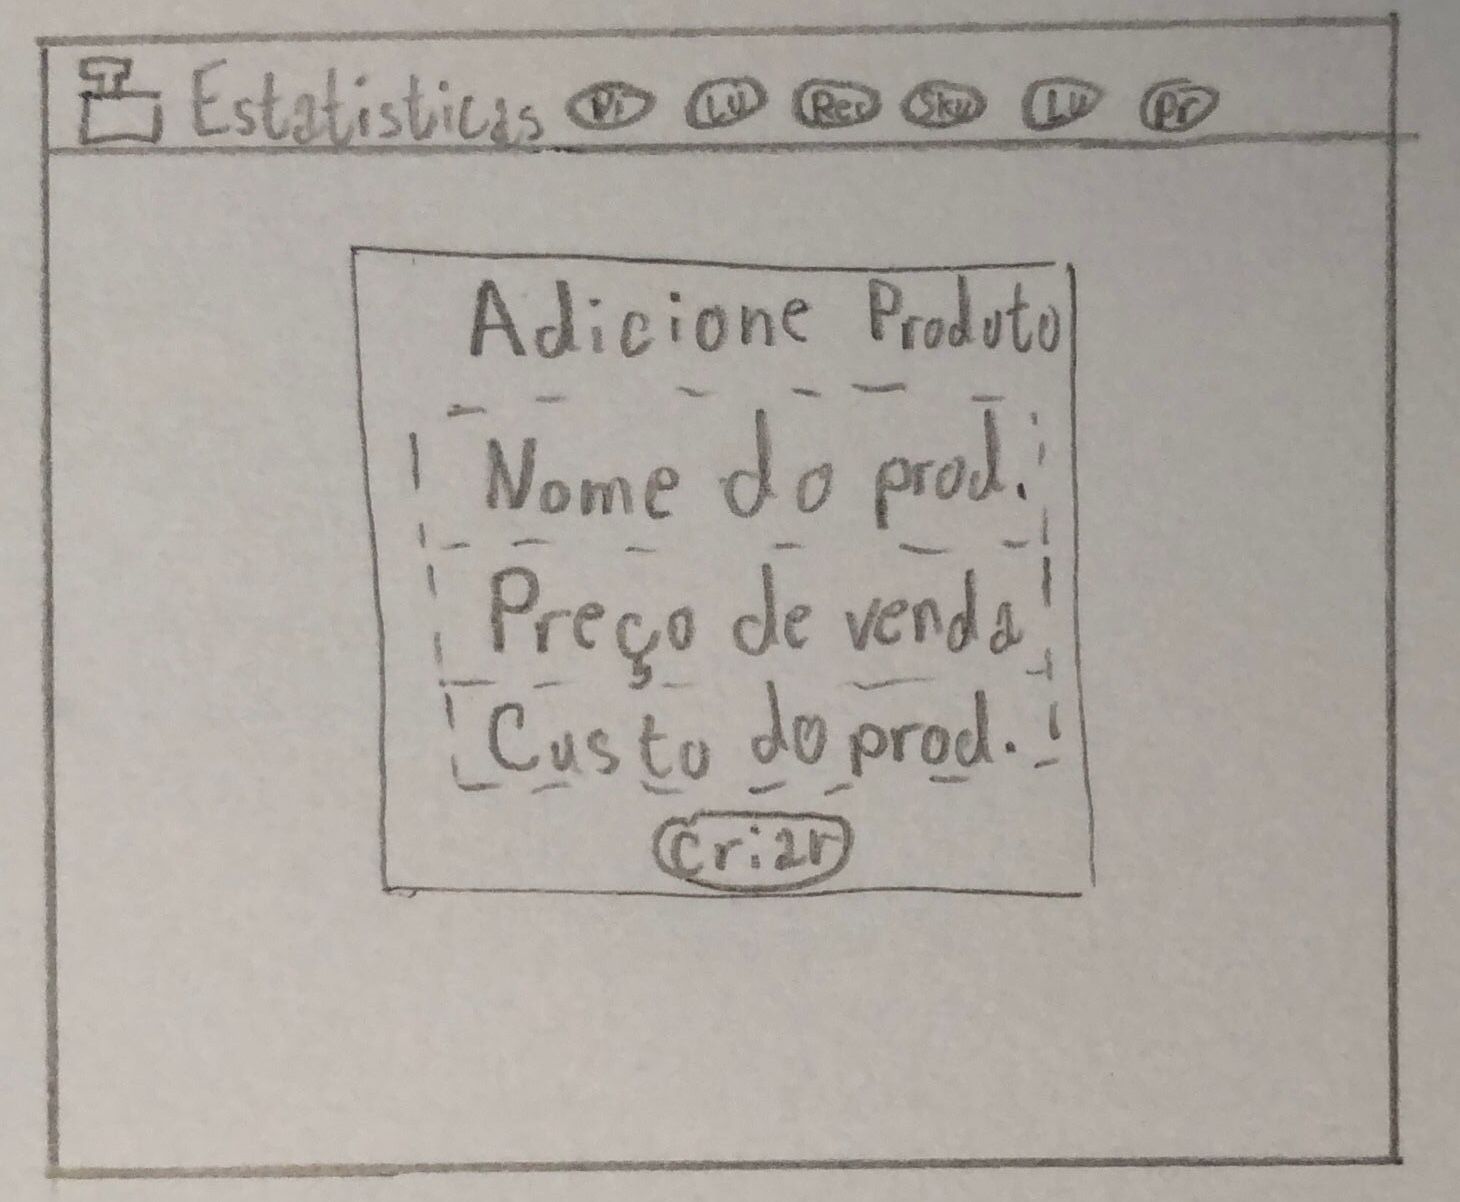 Estatisticas Pi Lu Rec Sku Lu Pr
Adicione Produto
Nome do prod.
Preço de venda
Custo do prod.
Criar